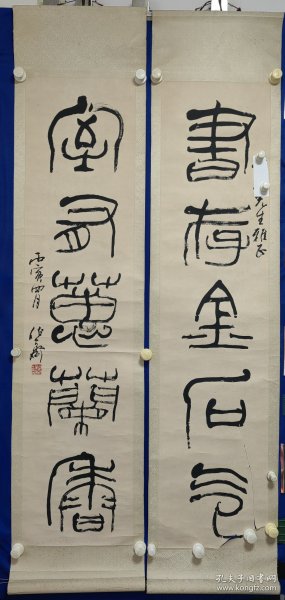 書存金石气
先生雅正
室有蕙蘭香
丙寅四月
孔夫子旧书网
www.kongfz.com